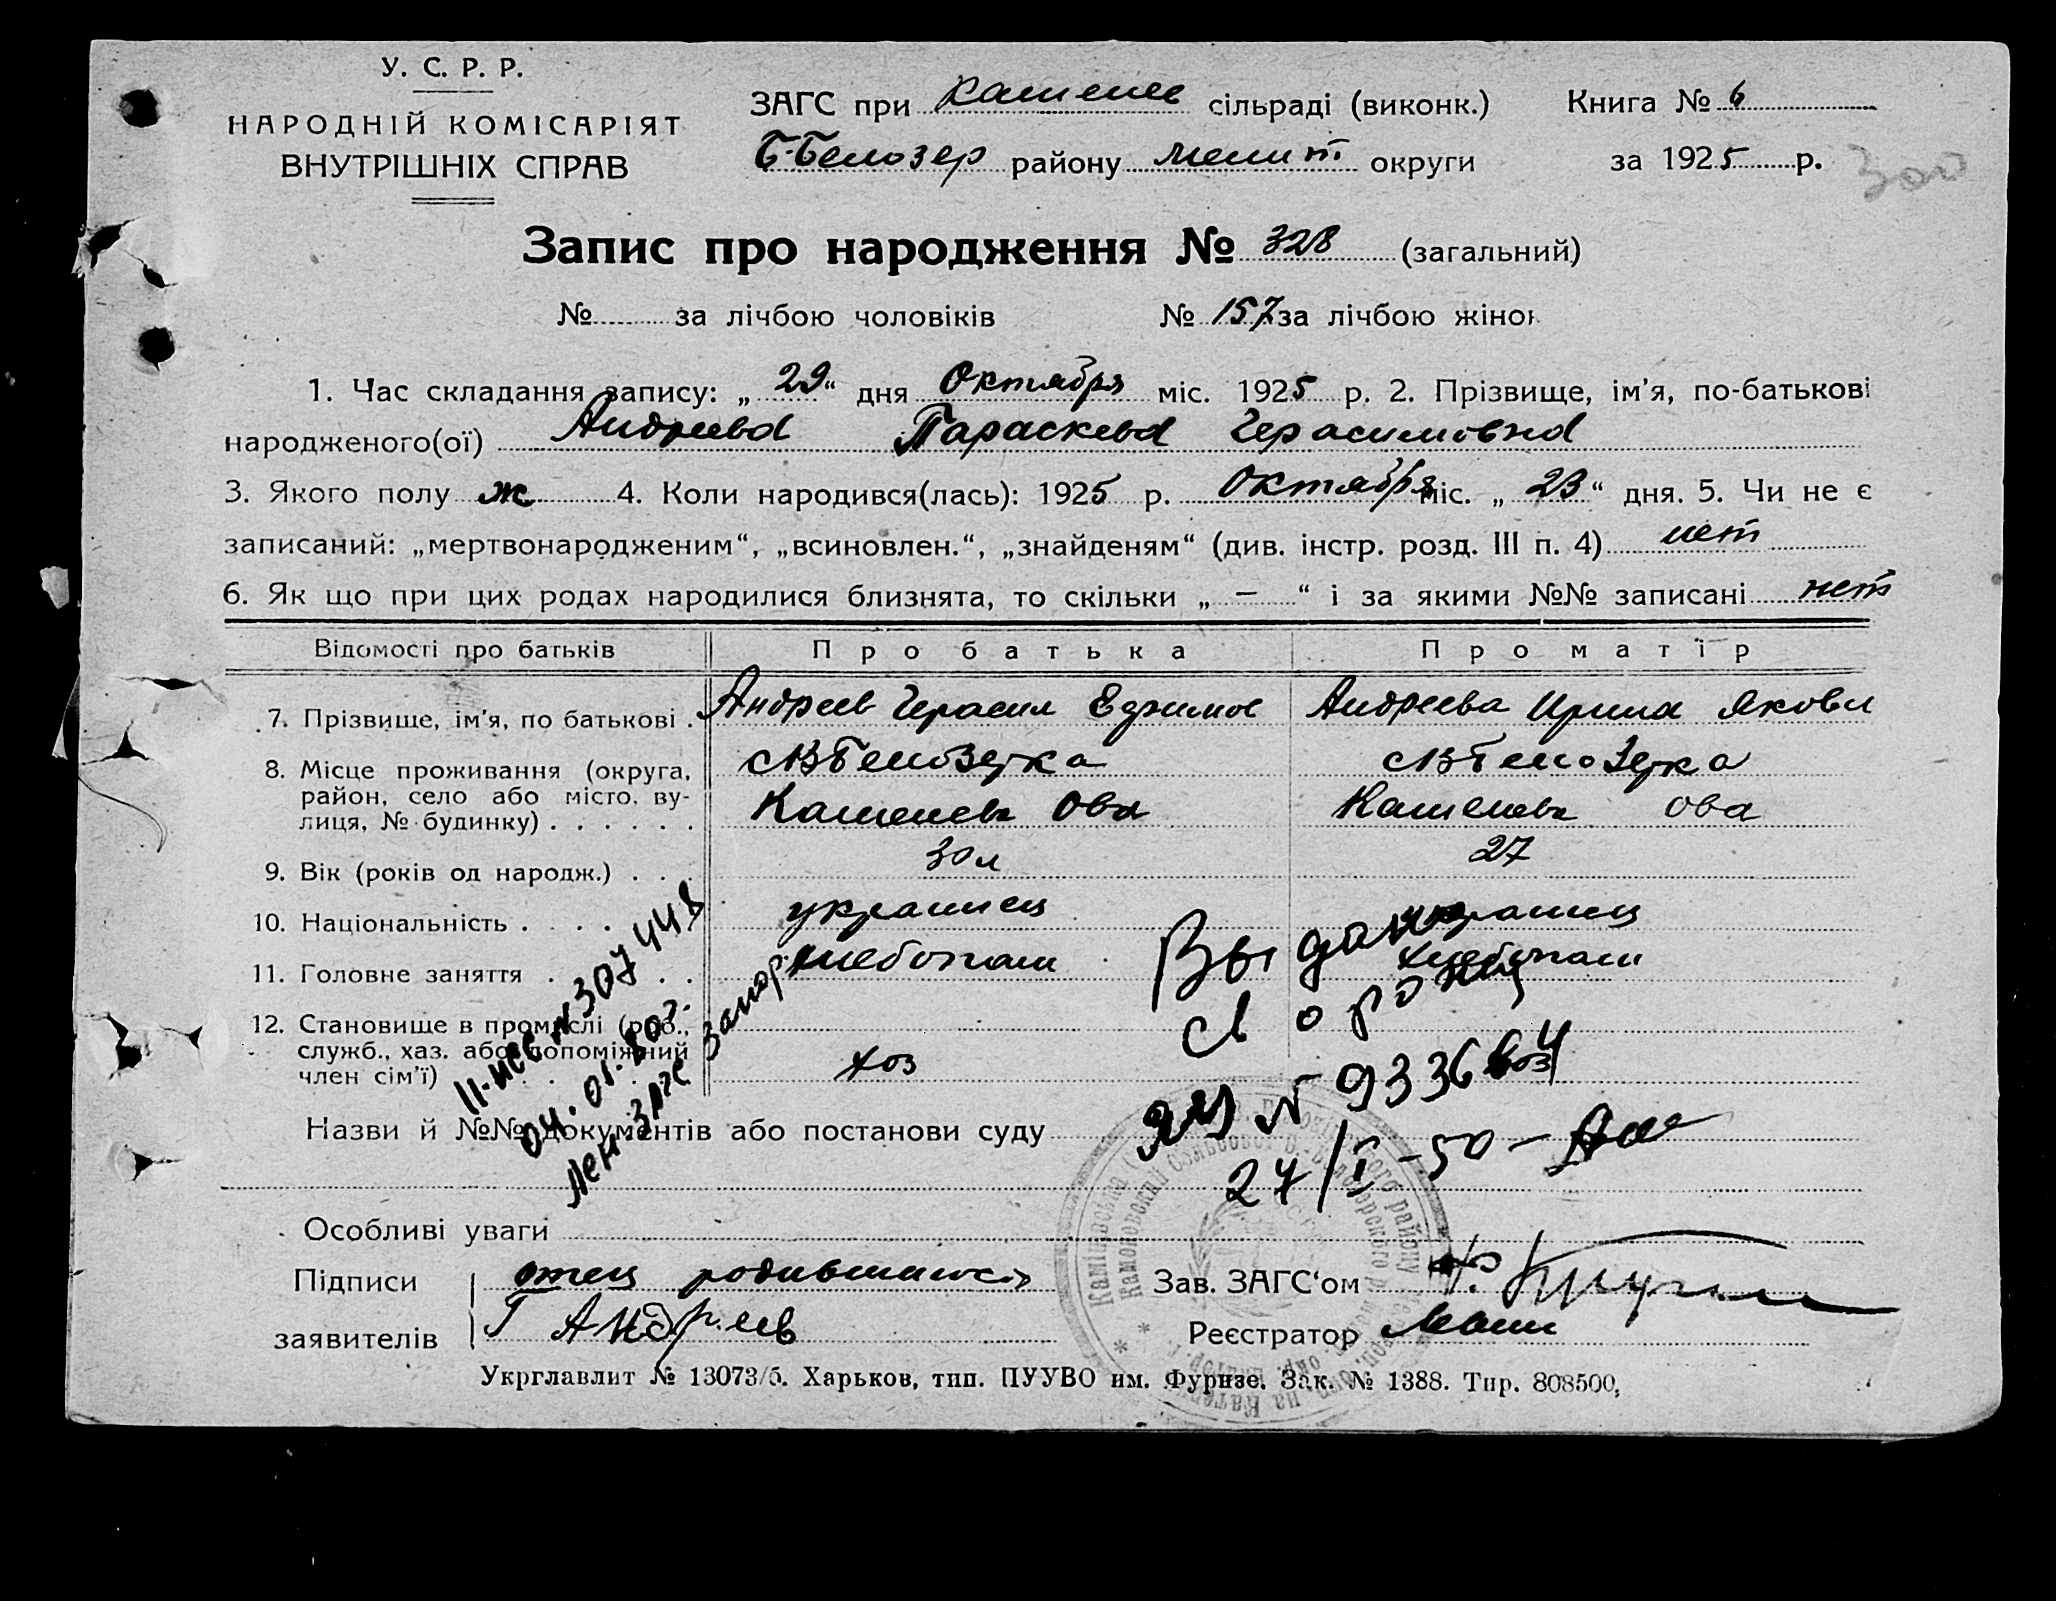 У. С. Р. Р.
НАРОДНІЙ КОМІСАРІЯТ
ВНУТРІШНІХ СПРАВ
ЗАГС при Каменск сільраді (виконк.)
Б-Белозер району Мелит округи
Книга № 6
за 1925 р.
300
Запис про народження № 328 (загальний)
№ за лічбою чоловіків № 157 за лічбою жінок
1. Час складання запису: „ 29 “ дня Октября міс. 1925 р. 2. Прізвище, ім’я, по-батькові
народженого(ої) Андреева Параскева Герасимовна
3. Якого полу ж 4. Коли народився(лась): 1925 р. Октября міс. „ 23 “ дня. 5. Чи не є
записаний: „мертвонародженим“, „всиновлен.“, „знайденям“ (див. інстр. розд. III п. 4) нет
6. Як що при цих родах народилися близнята, то скільки „ — “ і за якими №№ записані нет
Відомості про батьків Про батька Про матір
7. Прізвище, ім’я, по батькові . Андреев Герасим Ефимов Андреева Ирина Яковл
8. Місце проживання (округа, Белозерка Белозерка
район, село або місто, ву-
лиця, № будинку) . . . . . .
9. Вік (років од народж.) . . . 30 л 27
10. Національність . . . . украинец украинец
11. Головне заняття . . . . хлебопаш хлебопаш
12. Становище в промислі (роб.,
служб., хаз. або допоміжний
член сім’ї) хоз
II-ЖС № 307448
04.01.80г.
Лен. ЗАГС Запор
Выдано
№ 9336
27/I-50-
Назви й №№ документів або постанови суду
Особливі уваги
Підписи отец родившейся
заявителів Г Андреев
Зав. ЗАГС‘ом
Реєстратор
Укрглавлит № 13073/б. Харьков, тип. ПУУВО им. Фрунзе. Зак. № 1388. Тир. 808500,